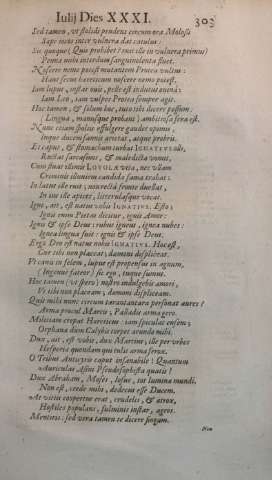 Iulij Dies XXXI. 303
Sed tamen, ut stolidi pendens circum ora Molossi
Sapè iocos inter vulnera dat catulus:
Sic quoque (Quis prohibet? ruit ille in vulnera primus)
Poena nolit interdum sanguinolenta fluet.
Nescere nome potest mutantem Protea vultus:
Hanc serut hæreticum noscere nomo potest.
Iam lupus, instat ouis, pelle est indutus ouinâ:
Iam Leo, iam vulpes Protea semper agit.
Hoc tamen, & solum hoc, tuto tibi dicere possum.
(Lingua, manusque probant) ambitiosa fera est.
Nunc etiam solitæ effulgere gaudet opimus,
Inque ducem summis arietat, atque probris.
Et caput, & stomachum turbat IGNATIVS olli,
Recitat sarcasmos, & maledicta vomit,
Cum sonat illimis LOYOLÆ vita, nec vllam
Criminis illuuiem candida fama trahat:
In latus ille ruit; non recta fronte duellat,
In uno ille apices, litterulasque vocat.
Ignis, ait, est natus nobis IGNATIVS. Esto;
Ignis enim Pietas dicitur, ignis Amor:
Ignis & ipse Deus: rubus igneus, ignea nubes:
Ignea lingua fuit: ignis & ipse Deus.
Ergo Deo est natus nobis IGNATIVS. Hoc est,
Cur tibi non placeat, damoni displiceat.
Vt canis in felem, lupus est propensus in agnum,
(Ingenue fateor) sic ego, tuque sumus.
Hoc tamen (vt spero) nostris indulgebis amori,
Vt tibi non placeam, damoni displiceam.
Quis mihi nunc circum tarantantara personat aures?
Arma procul Martis, Palladis arma gero.
Militiam crepat Hæreticus: iam spiculat ensem;
Orphana dum Calybis torpet arunda mihi.
Dux, ait, est vobis, dux Martius, ille per orbes
Hesperios quondam qui tulit arma ferox.
O Tribus Anticyris caput insanabile! Quantum
Auriculas Asini Pseudosophista quatis!
Dux Abraham, Moses, Iosue, tot lumina mundi.
Non est, crede mihi, dedecus esse Ducem.
At vitiis cospertus erat, crudelis, & atrox,
Hostiles populans, fulminis instar, agros.
Mentiris: sed vera tamen te dicere fingam.
Non